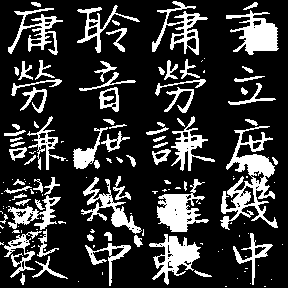 秉立庶幾中
庸勞謙謹敕
聆音庶幾中
庸勞謙謹敕